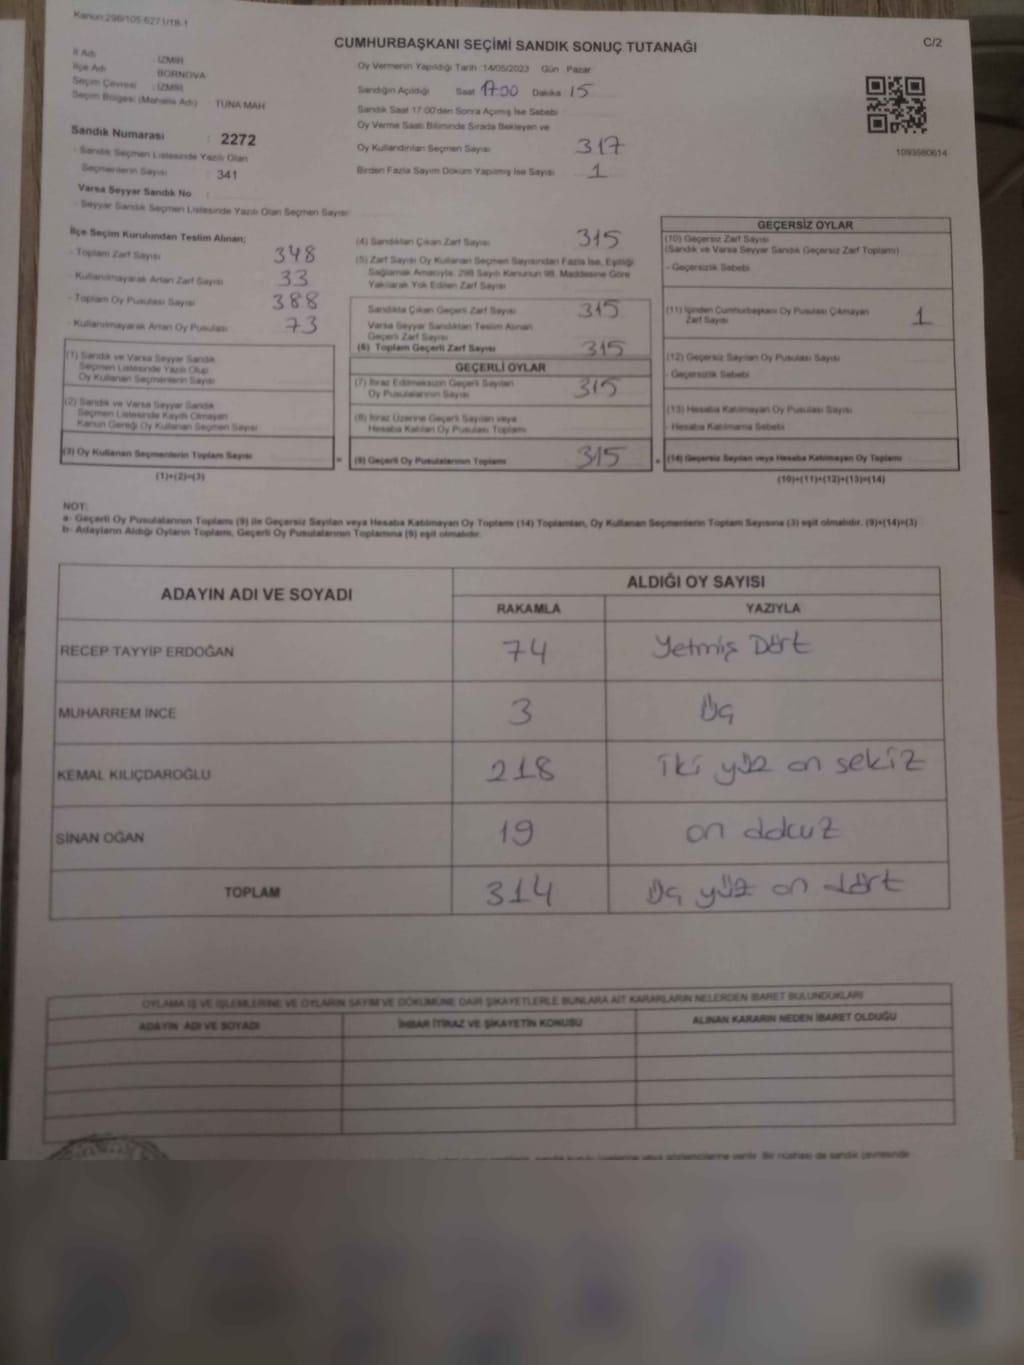 Kanun:298/105-6271/18-1
C/2
CUMHURBAŞKANI SEÇİMİ SANDIK SONUÇ TUTANAĞI
İl Adı : İZMİR
İlçe Adı : BORNOVA
Seçim Çevresi : İZMİR
Seçim Bölgesi (Mahalle Adı) TUNA MAH
Sandık Numarası : 2272
- Sandık Seçmen Listesinde Yazılı Olan
Seçmenlerin Sayısı : 341
Varsa Seyyar Sandık No :
- Seyyar Sandık Seçmen Listesinde Yazılı Olan Seçmen Sayısı
Oy Vermenin Yapıldığı Tarih :14/05/2023 Gün :Pazar
Sandığın Açıldığı Saat 17:00 Dakika 15
Sandık Saat 17:00'den Sonra Açımış İse Sebebi
Oy Verme Saati Bitiminde Sırada Bekleyen ve
Oy Kullandırılan Seçmen Sayısı 317
Birden Fazla Sayım Döküm Yapılmış İse Sayısı 1
1093580614
İlçe Seçim Kurulundan Teslim Alınan;
- Toplam Zarf Sayısı 348
- Kullanılmayarak Artan Zarf Sayısı 33
- Toplam Oy Pusulası Sayısı 388
- Kullanılmayarak Artan Oy Pusulası 73
(1) Sandık ve Varsa Seyyar Sandık
Seçmen Listesinde Yazılı Olup
Oy Kullanan Seçmenlerin Sayısı
(2) Sandık ve Varsa Seyyar Sandık
Seçmen Listesinde Kayıtlı Olmayan
Kanun Gereği Oy Kullanan Seçmen Sayısı
(3) Oy Kullanan Seçmenlerin Toplam Sayısı
(1)+(2)=(3)
(4) Sandıktan Çıkan Zarf Sayısı 315
(5) Zarf Sayısı Oy Kullanan Seçmen Sayısından Fazla İse, Eşitliği
Sağlamak Amacıyla, 298 Sayılı Kanunun 98. Maddesine Göre
Yakılarak Yok Edilen Zarf Sayısı
Sandıkta Çıkan Geçerli Zarf Sayısı 315
Varsa Seyyar Sandıktan Teslim Alınan
Geçerli Zarf Sayısı
(6) Toplam Geçerli Zarf Sayısı 315
GEÇERLİ OYLAR
(7) İtiraz Edilmeksizin Geçerli Sayılan
Oy Pusulasının Sayısı 315
(8) İtiraz Üzerine Geçerli Sayılan veya
Hesaba Katılan Oy Pusulası Toplamı
= (9) Geçerli Oy Pusulalarının Toplamı 315
GEÇERSİZ OYLAR
(10) Geçersiz Zarf Sayısı
(Sandık ve Varsa Seyyar Sandık Geçersiz Zarf Toplamı)
- Geçersizlik Sebebi
(11) İçinden Cumhurbaşkanı Oy Pusulası Çıkmayan
Zarf Sayısı 1
(12) Geçersiz Sayılan Oy Pusulası Sayısı
- Geçersizlik Sebebi
(13) Hesaba Katılmayan Oy Pusulası Sayısı
- Hesaba Katılmama Sebebi
+ (14) Geçersiz Sayılan veya Hesaba Katılmayan Oy Toplamı
(10)+(11)+(12)+(13)=(14)
NOT:
a- Geçerli Oy Pusulalarının Toplamı (9) ile Geçersiz Sayılan veya Hesaba Katılmayan Oy Toplamı (14) Toplamları, Oy Kullanan Seçmenlerin Toplam Sayısına (3) eşit olmalıdır. (9)+(14)=(3)
b- Adayların Aldığı Oyların Toplamı, Geçerli Oy Pusulalarının Toplamına (9) eşit olmalıdır.
ADAYIN ADI VE SOYADI
ALDIĞI OY SAYISI
RAKAMLA YAZIYLA
RECEP TAYYİP ERDOĞAN 74 Yetmiş Dört
MUHARREM İNCE 3 Üç
KEMAL KILIÇDAROĞLU 218 iki yüz on sekiz
SİNAN OĞAN 19 on dokuz
TOPLAM 314 Üç yüz on dört
OYLAMA İŞ VE İŞLEMLERİNE VE OYLARIN SAYIM VE DÖKÜMÜNE DAİR ŞİKAYETLERLE BUNLARA AİT KARARLARIN NELERDEN İBARET BULUNDUKLARI
ADAYIN ADI VE SOYADI İHBAR İTİRAZ VE ŞİKAYETİN KONUSU ALINAN KARARIN NEDEN İBARET OLDUĞU